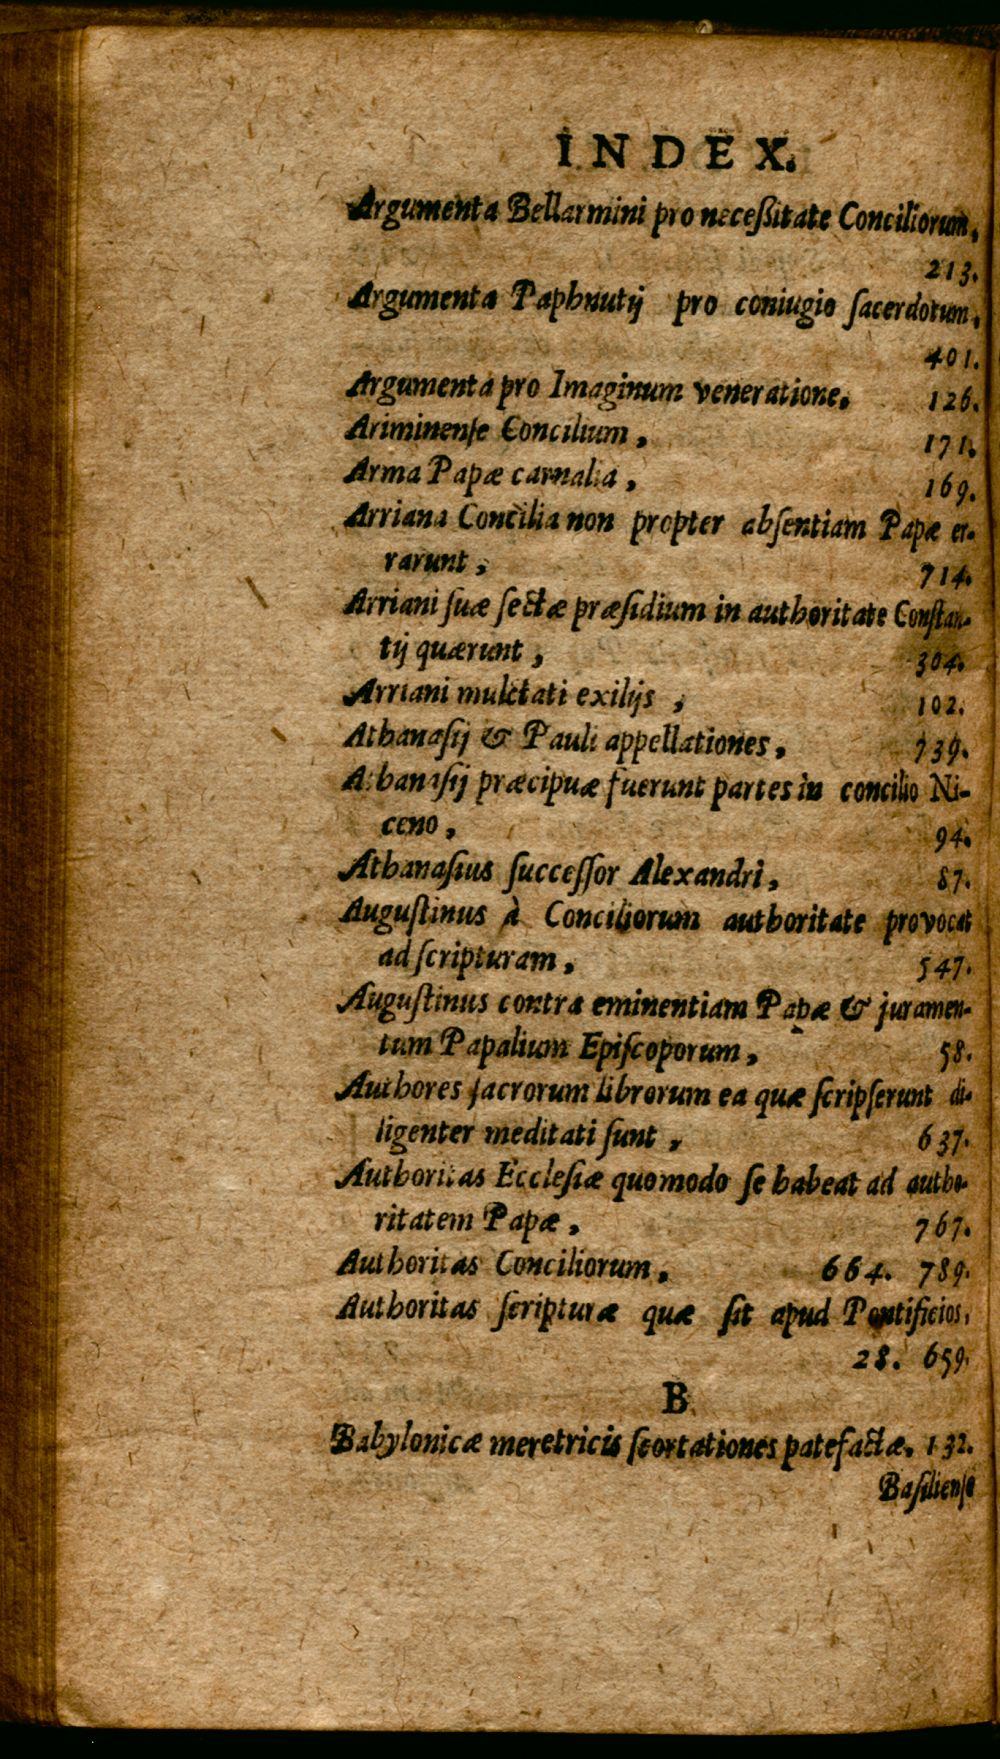 INDEX.
Argumenta Bellarmini pro neceßitate Conciliorum,
213.
Argumenta Paphnutij pro coniugio ſacerdotum,
401.
Argumenta pro Imaginum veneratione. 126.
Ariminenſe Concilium, 171.
Arma Papæ carnalia, 169.
Arriana Concilia non propter abſentiam Papæ er-
rarunt, 714.
Arriani ſuæ ſectæ præſidium in authoritate Conſtan-
tij quærunt, 304.
Arriani mulctati exilijs, 102.
Athanaſij & Pauli appellationes, 739.
Athanaſij præcipuæ fuerunt partes in concilio Ni-
ceno, 94.
Athanaſius ſucceſſor Alexandri, 87.
Auguſtinus à Conciliorum authoritate provocat
ad ſcripturam, 547.
Auguſtinus contra eminentiam Papæ & juramen-
tum Papalium Epiſcoporum, 58.
Authores ſacrorum librorum ea quæ ſcripſerunt di-
ligenter meditati ſunt, 637.
Authoritas Eccleſiæ quomodo ſe habeat ad autho-
ritatem Papæ, 767.
Authoritas Conciliorum, 664. 789.
Authoritas ſcripturæ quæ ſit apud Pontificios,
28. 659.
B
Babylonicæ meretricis ſcortationes patefactæ. 132.
Baſilienſe